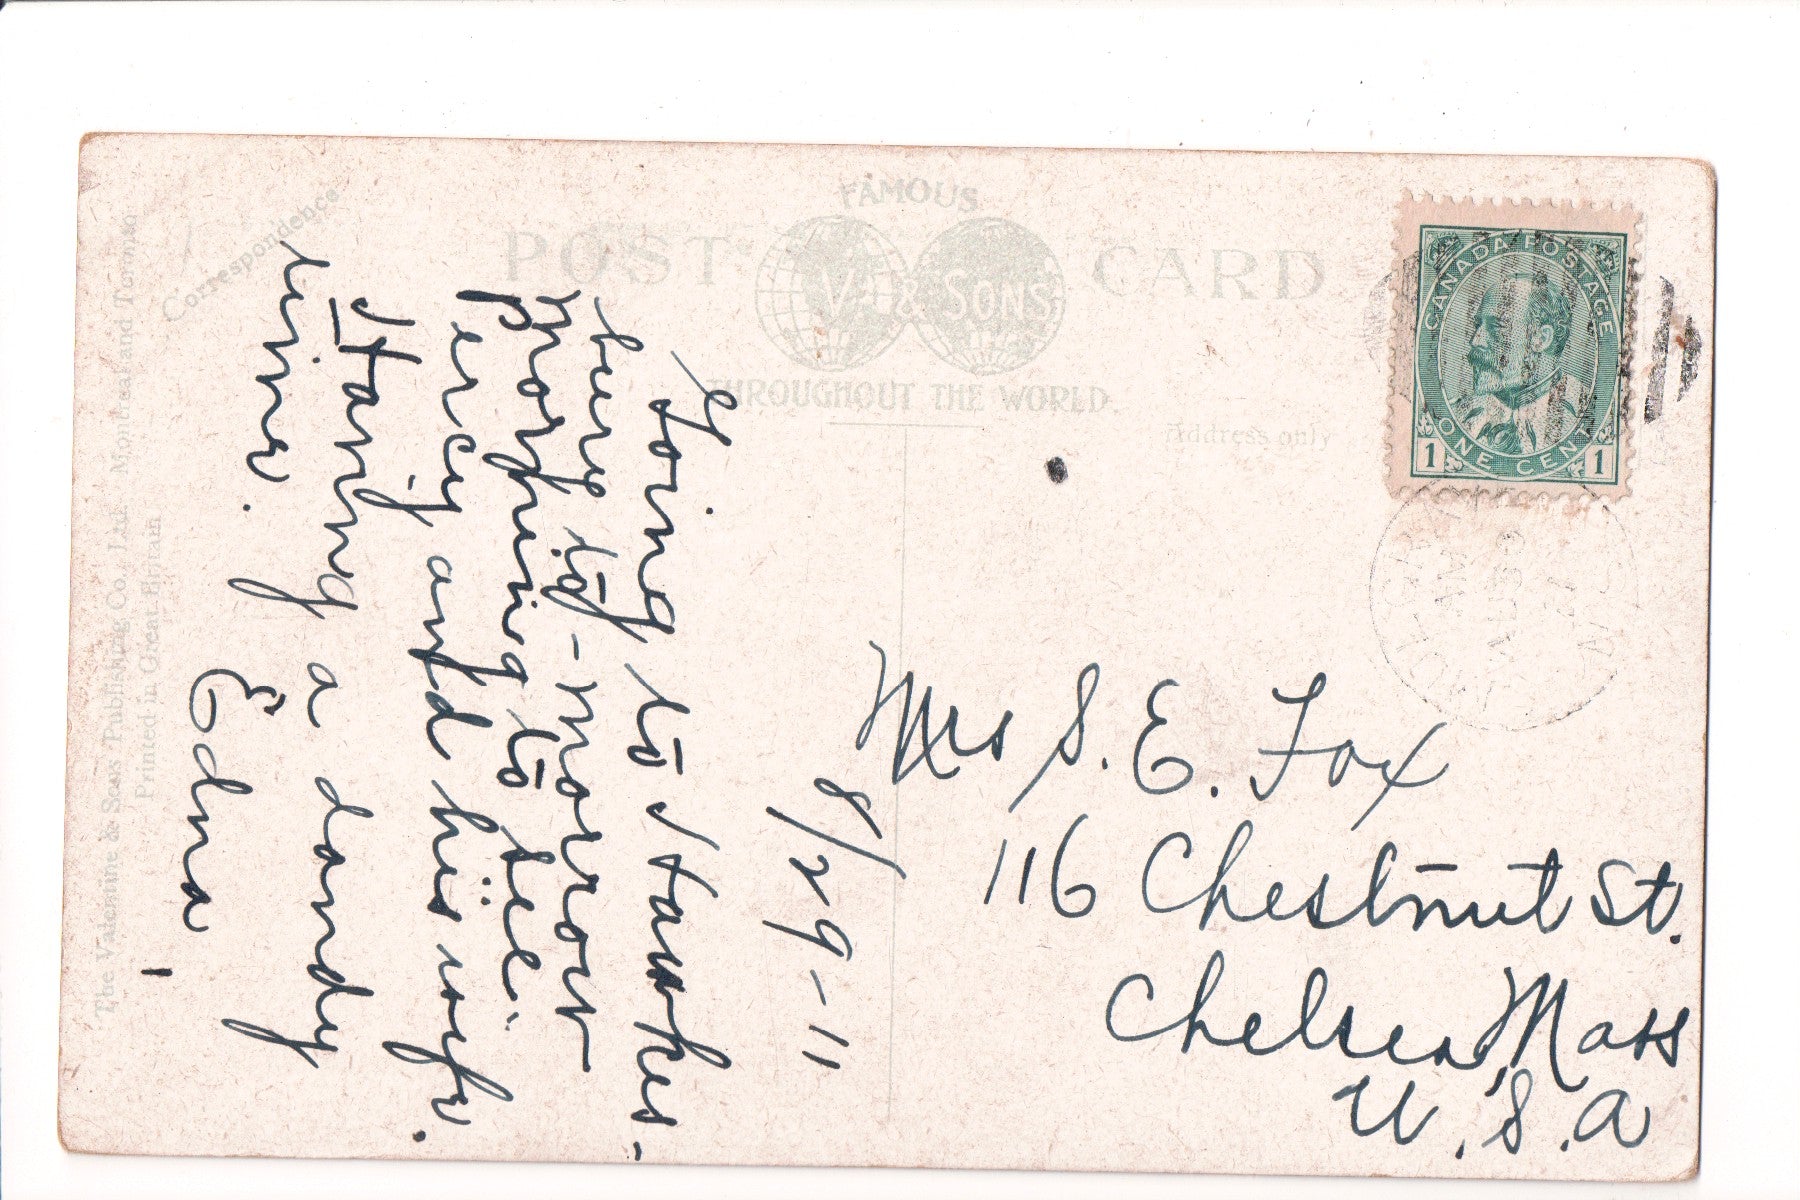 Correspondence
FAMOUS
POST CARD
V. & SONS
THROUGHOUT THE WORLD.
Address only
CANADA POSTAGE
ONE CENT
1 1
8/29-11
Going to Hawkes-
bury to-morrow
morning to see
Percy and his wife.
Having a dandy
time.
Edna
Mrs S. E. Fox
116 Chestnut St.
Chelsea, Mass
U.S.A
The Valentine & Sons Publishing Co., Ltd. Montreal and Toronto
Printed in Great Britain